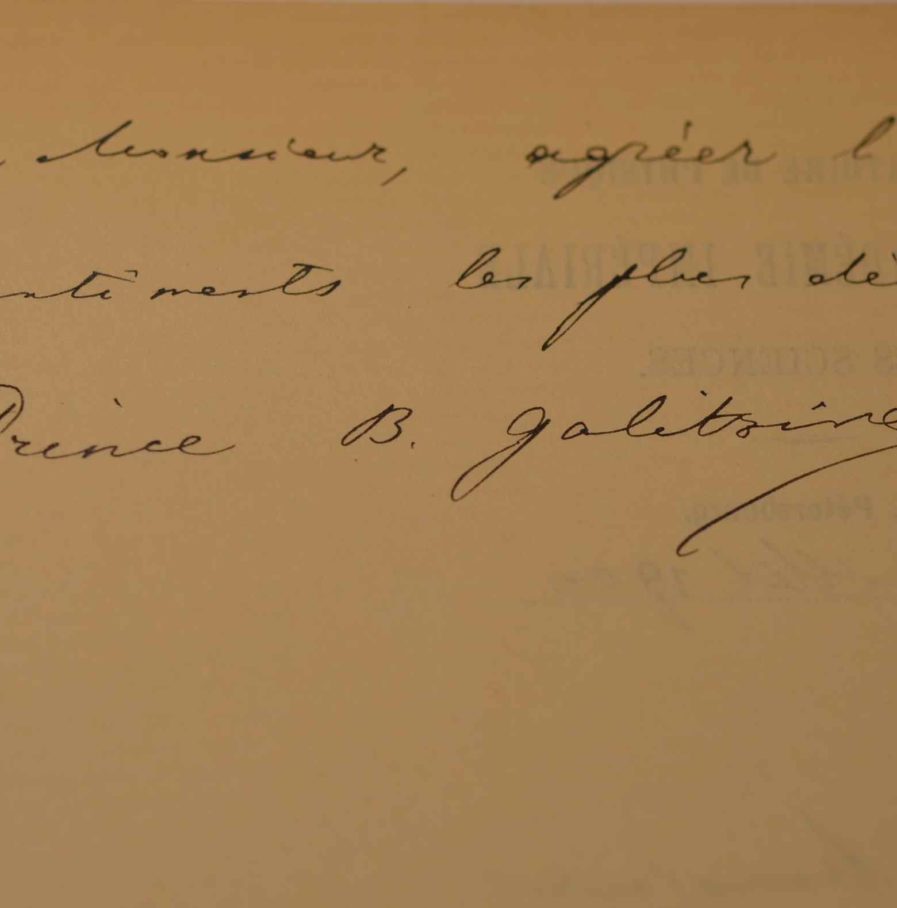 Monsieur, agréer l
ntiments les plus dé
Prince B. Galitzine